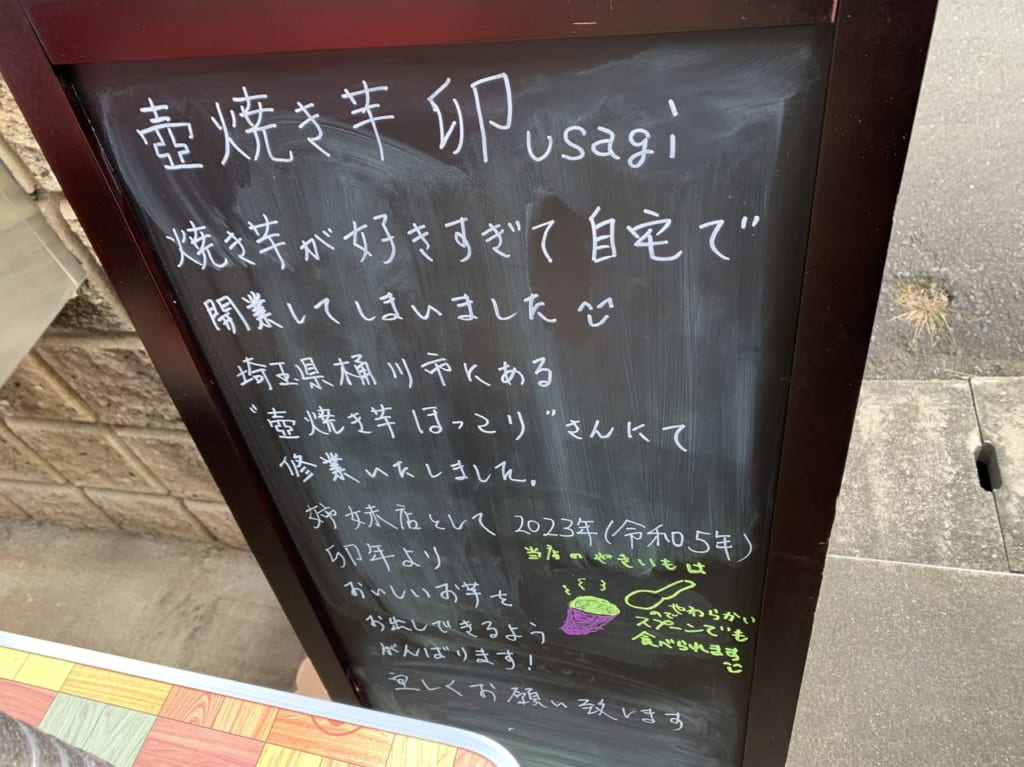 壺焼き芋 卯 usagi
焼き芋が好きすぎて自宅で
開業してしまいました
埼玉県桶川市にある
"壺焼き芋ほっこり"さんにて
修業いたしました。
姉妹店として 2023年(令和5年)
卯年より
おいしいお芋を
お出しできるよう
がんばります!
宜しくお願い致します
当店のやきいもは
やわらかい
ので
スプーンでも
食べられます